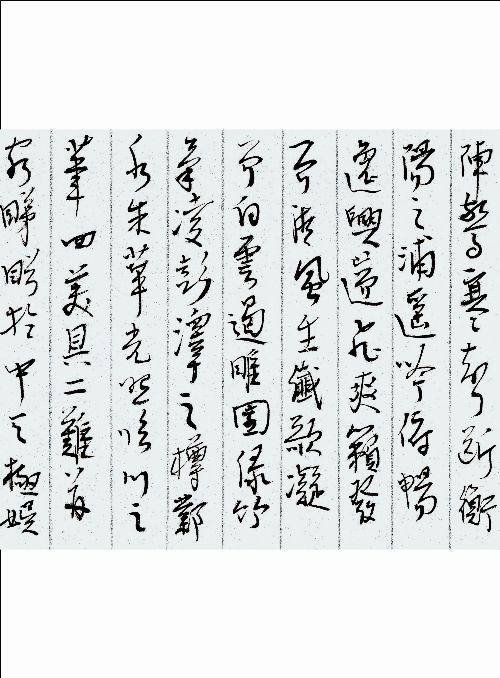 陣驚寒聲斷衡
陽之浦遙吟俯暢
逸興遄飛爽籟發
而清風生纖歌凝
而白雲遏睢園綠竹
氣凌彭澤之樽鄴
水朱華光照臨川之
筆四美具二難并
窮睇眄於中天極娛